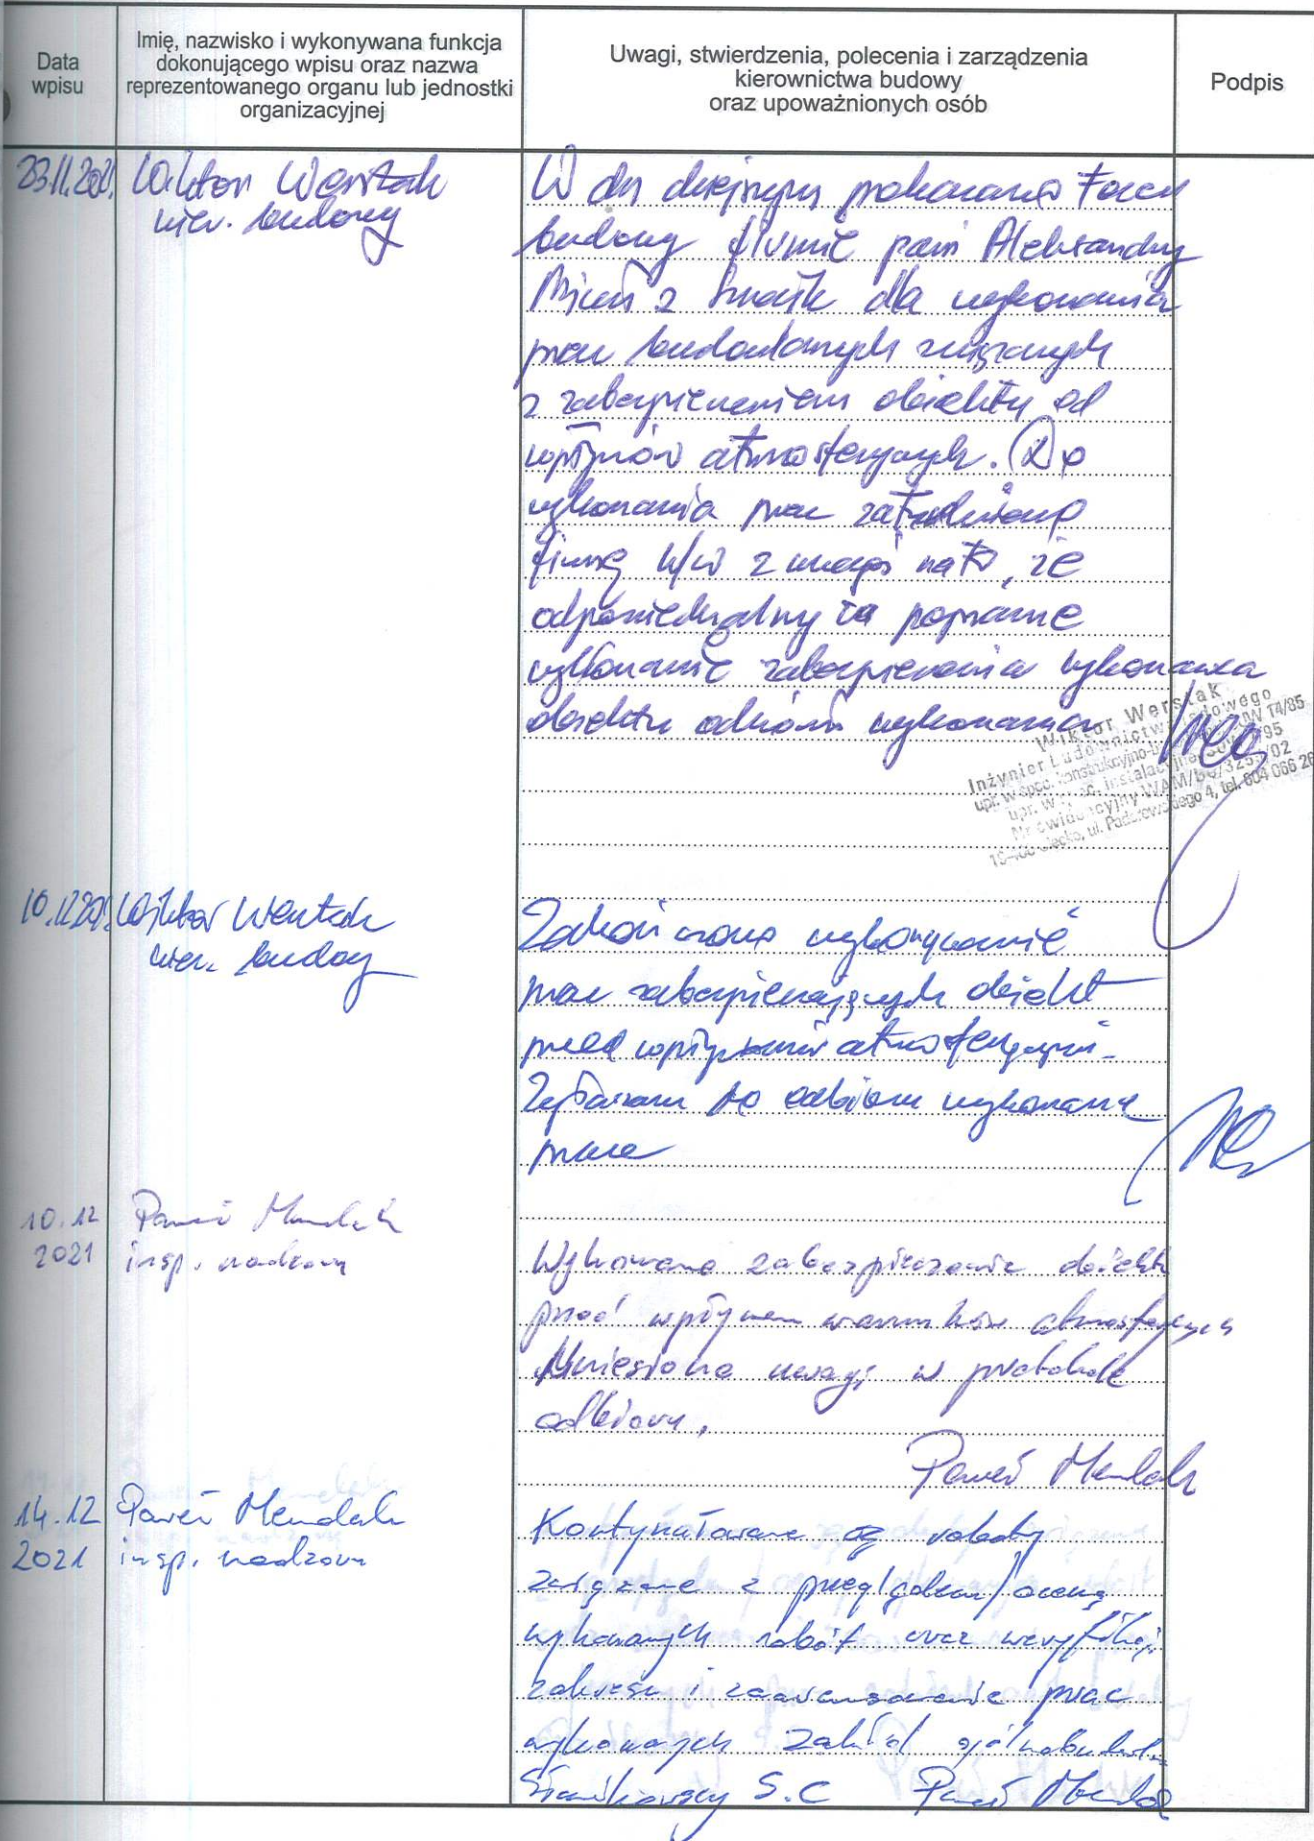 Data
wpisu
Imię, nazwisko i wykonywana funkcja
dokonującego wpisu oraz nazwa
reprezentowanego organu lub jednostki
organizacyjnej
Uwagi, stwierdzenia, polecenia i zarządzenia
kierownictwa budowy
oraz upoważnionych osób
Podpis
23.11.2021.
Wiktor Werstak
kier. budowy
W dn dzisiejszym przekazano teren
budowy firmie pani Aleksandry
z dla wykonania
prac budowlanych związanych
z zabezpieczeniem obiektu od
wpływów atmosferycznych. Do
wykonania prac zatrudniono
firmę w/w z uwagi na to, że
odpowiedzialny za poprawne
wykonanie zabezpieczenia wykonawca
obiektu wykonania
Wiktor Werstak
Inżynier Budownictwa Lądowego
upr. w spec. konstrukcyjno-
upr. w spec. instalacyjnej
Nr ewidencyjny WAM/
ul. 4, tel. 604 066 26
10.12.2021.
Wiktor Werstak
kier. budowy
Zakończono wykonywanie
prac zabezpieczających obiekt
przed wpływami atmosferycznymi.
Zgłaszam do odbioru wykonane
prace
10.12
2021
Paweł Mendak
insp. nadzoru
Wykonano zabezpieczenie obiektu
przed wpływem warunków atmosferycznych
Wniesiono uwagi w protokole
odbioru.
Paweł Mendak
14.12
2021
Paweł Mendak
insp. nadzoru
Kontynuowane są roboty
związane z przeglądem/oceną
wykonanych robót oraz weryfikacji
zakresu i zaawansowanie prac
wykonanych zakład ogólnobudowl.
S.C Paweł Mendak